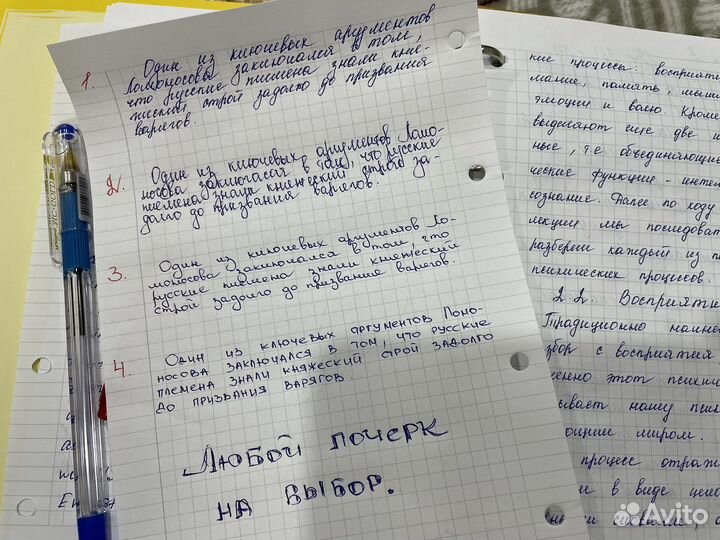 1. Один из ключевых аргументов
Ломоносова заключался в том,
что русские племена знали кня-
жеский строй задолго до призвания
варягов.
2. Один из ключевых аргументов Ломо-
носова заключался в том, что русские
племена знали княжеский строго за-
долго до призвания варягов.
3. Один из ключевых аргументов Ло-
моносова заключался в том, что
русские племена знали княжеский
строй задолго до призвание варягов.
4. Один из ключевых аргументов Ломо-
носова заключался в том, что русские
племена знали княжеский строй задолго
до призвания варягов.
Любой почерк
на выбор.
ние процессы: восприяти
мание, память, мышл
эмоции и волю. Кроме
выделяют еще две и
ные, т.е объединяющие
ческие функции - интел
сознание. Далее по ходу
лекции мы последоват
разберем каждый из п
психических процессов.
2.2. Восприятие
Традиционно начина
збор с восприятия.
менно этот психич
ывает нашу псих
ющим миром.
процесс отраж
в виде цело
Avito